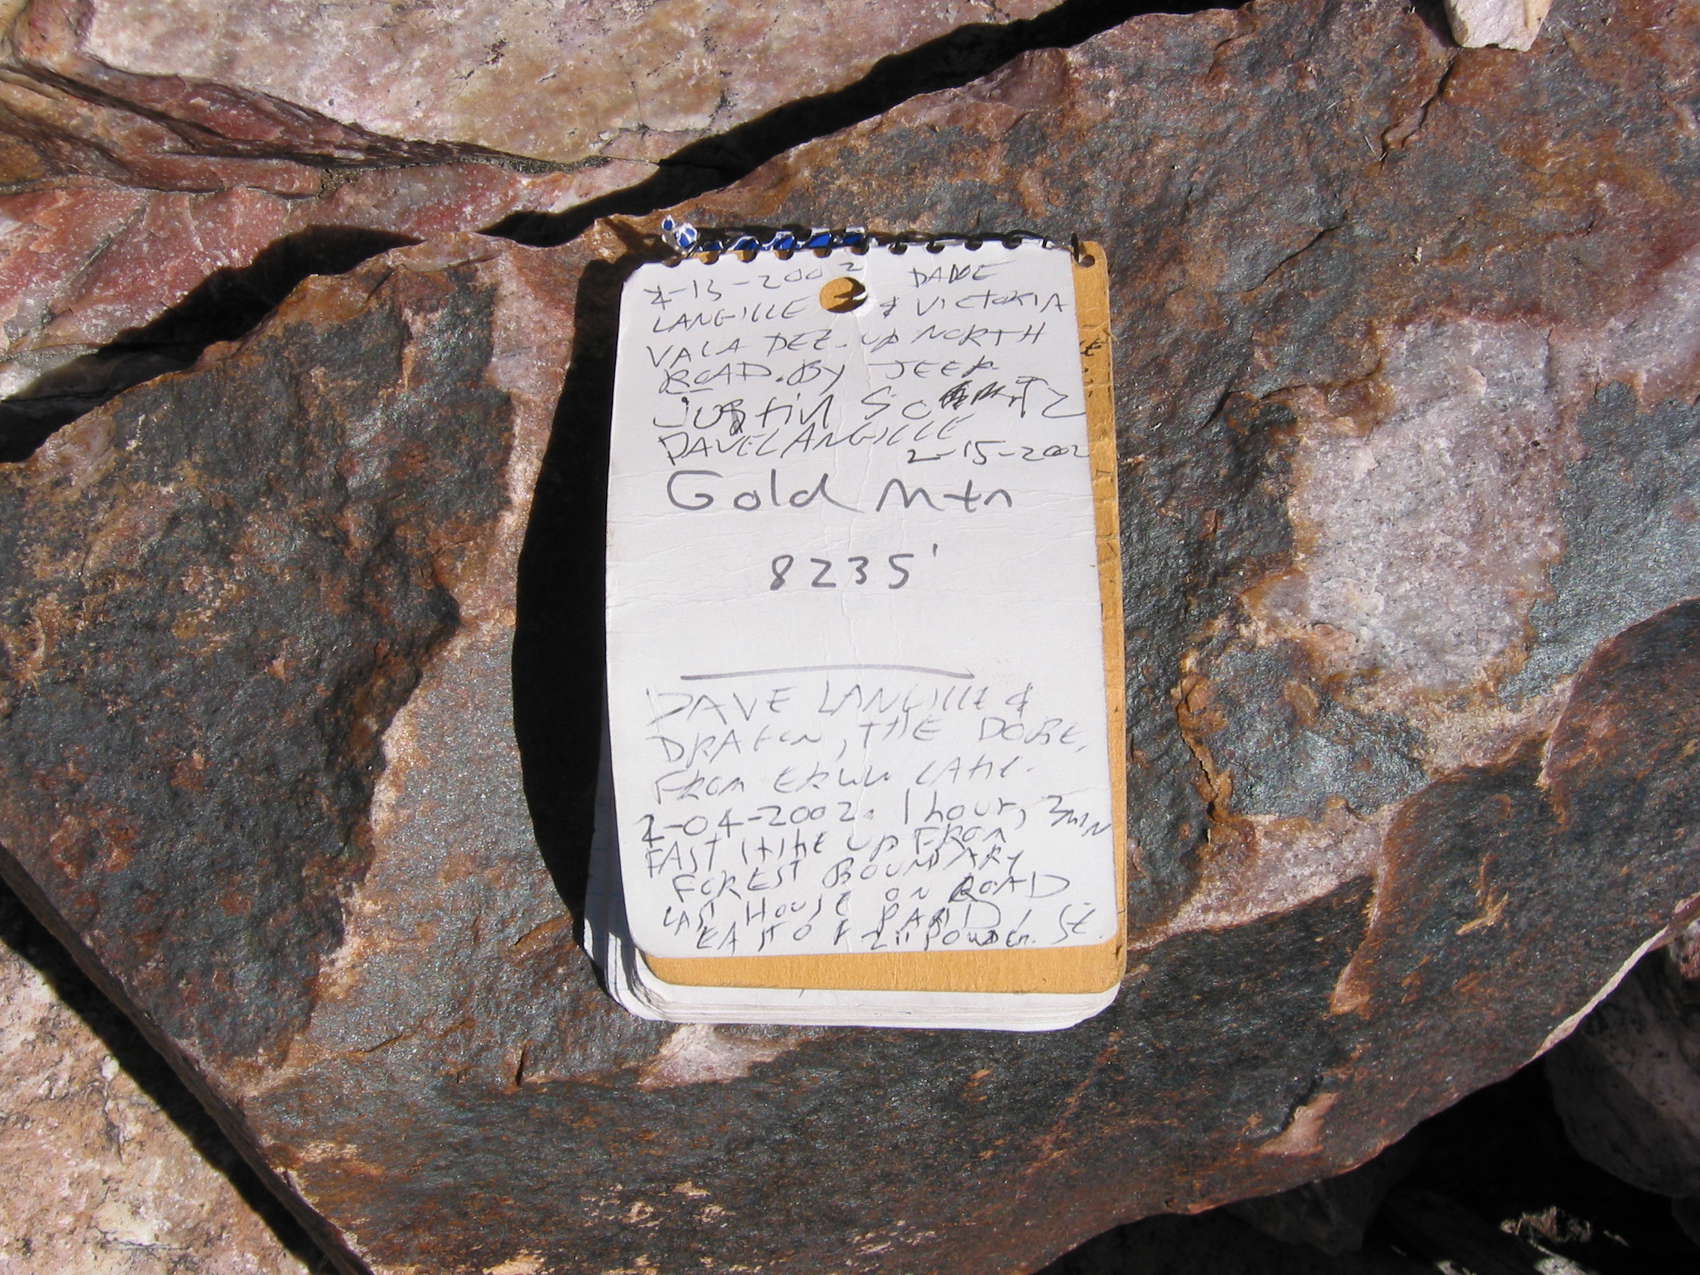 4-13-2002 DAVE
LANGILLE & VICTORIA
VALADEZ-UP NORTH
ROAD. BY JEEP
JUSTIN
DAVE LANGILLE
2-15-2002
Gold Mtn
8235'
DAVE LANGILLE &
DRAGON, THE DOBE,
FROM ERWIN LAKE.
2-04-2002. 1 hour, 3 MIN
FAST HIKE UP FROM
FOREST BOUNDARY
LAST HOUSE ON ROAD
EAST OF